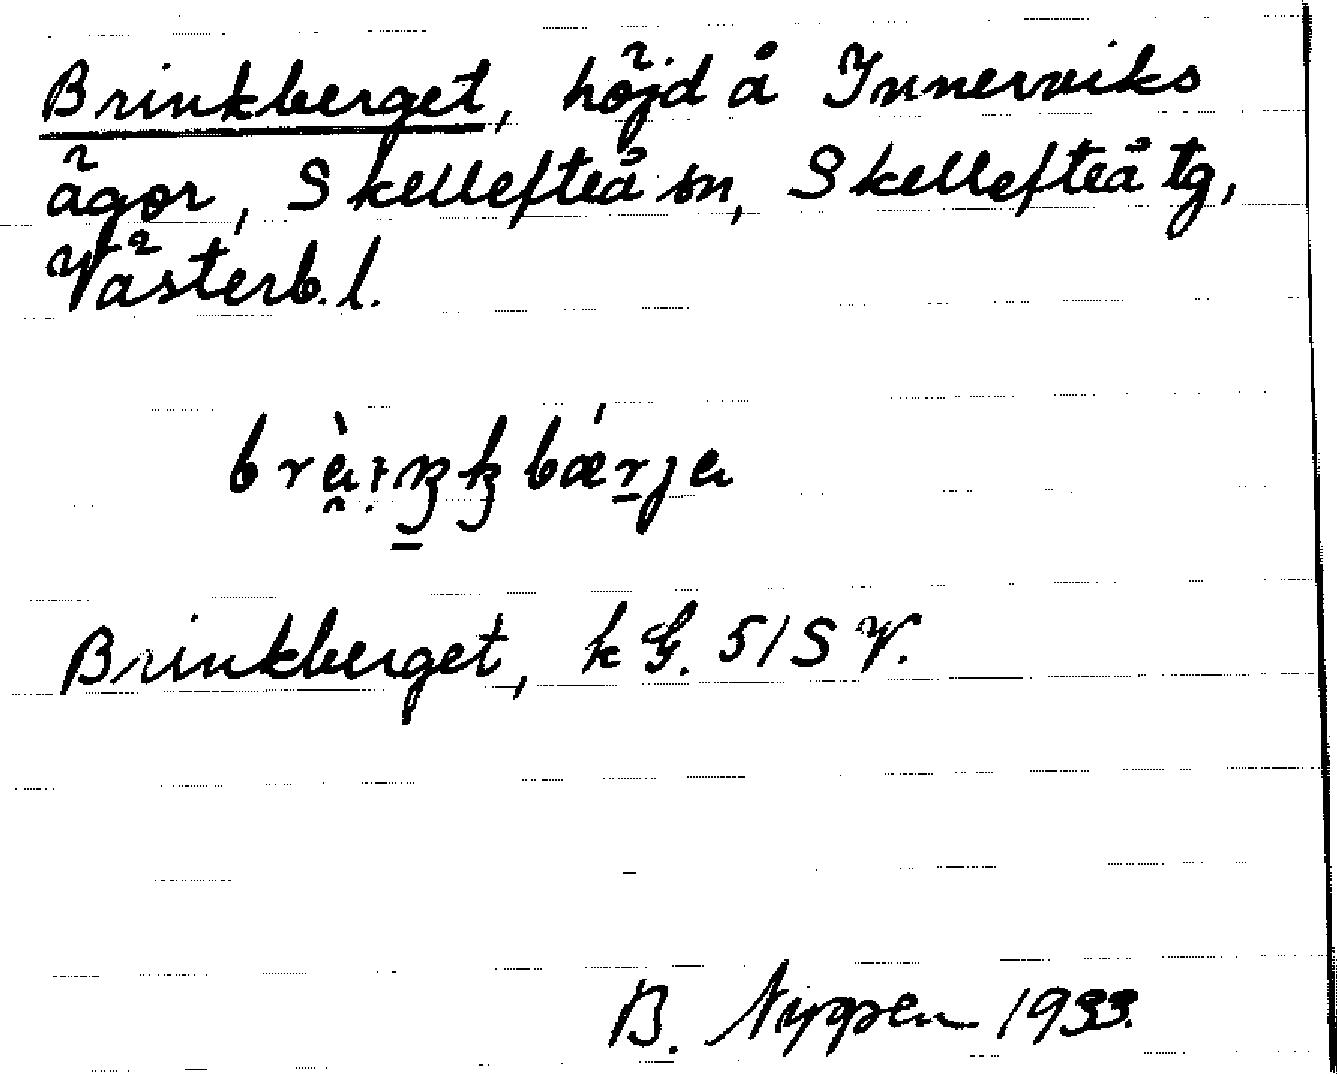 Brinkberget, höjd å Innerviks
ägor, Skellefteå sn, Skellefteå tg,
Västerb. l.
Brinkberget, kG. 51 S V.
B. 1933.